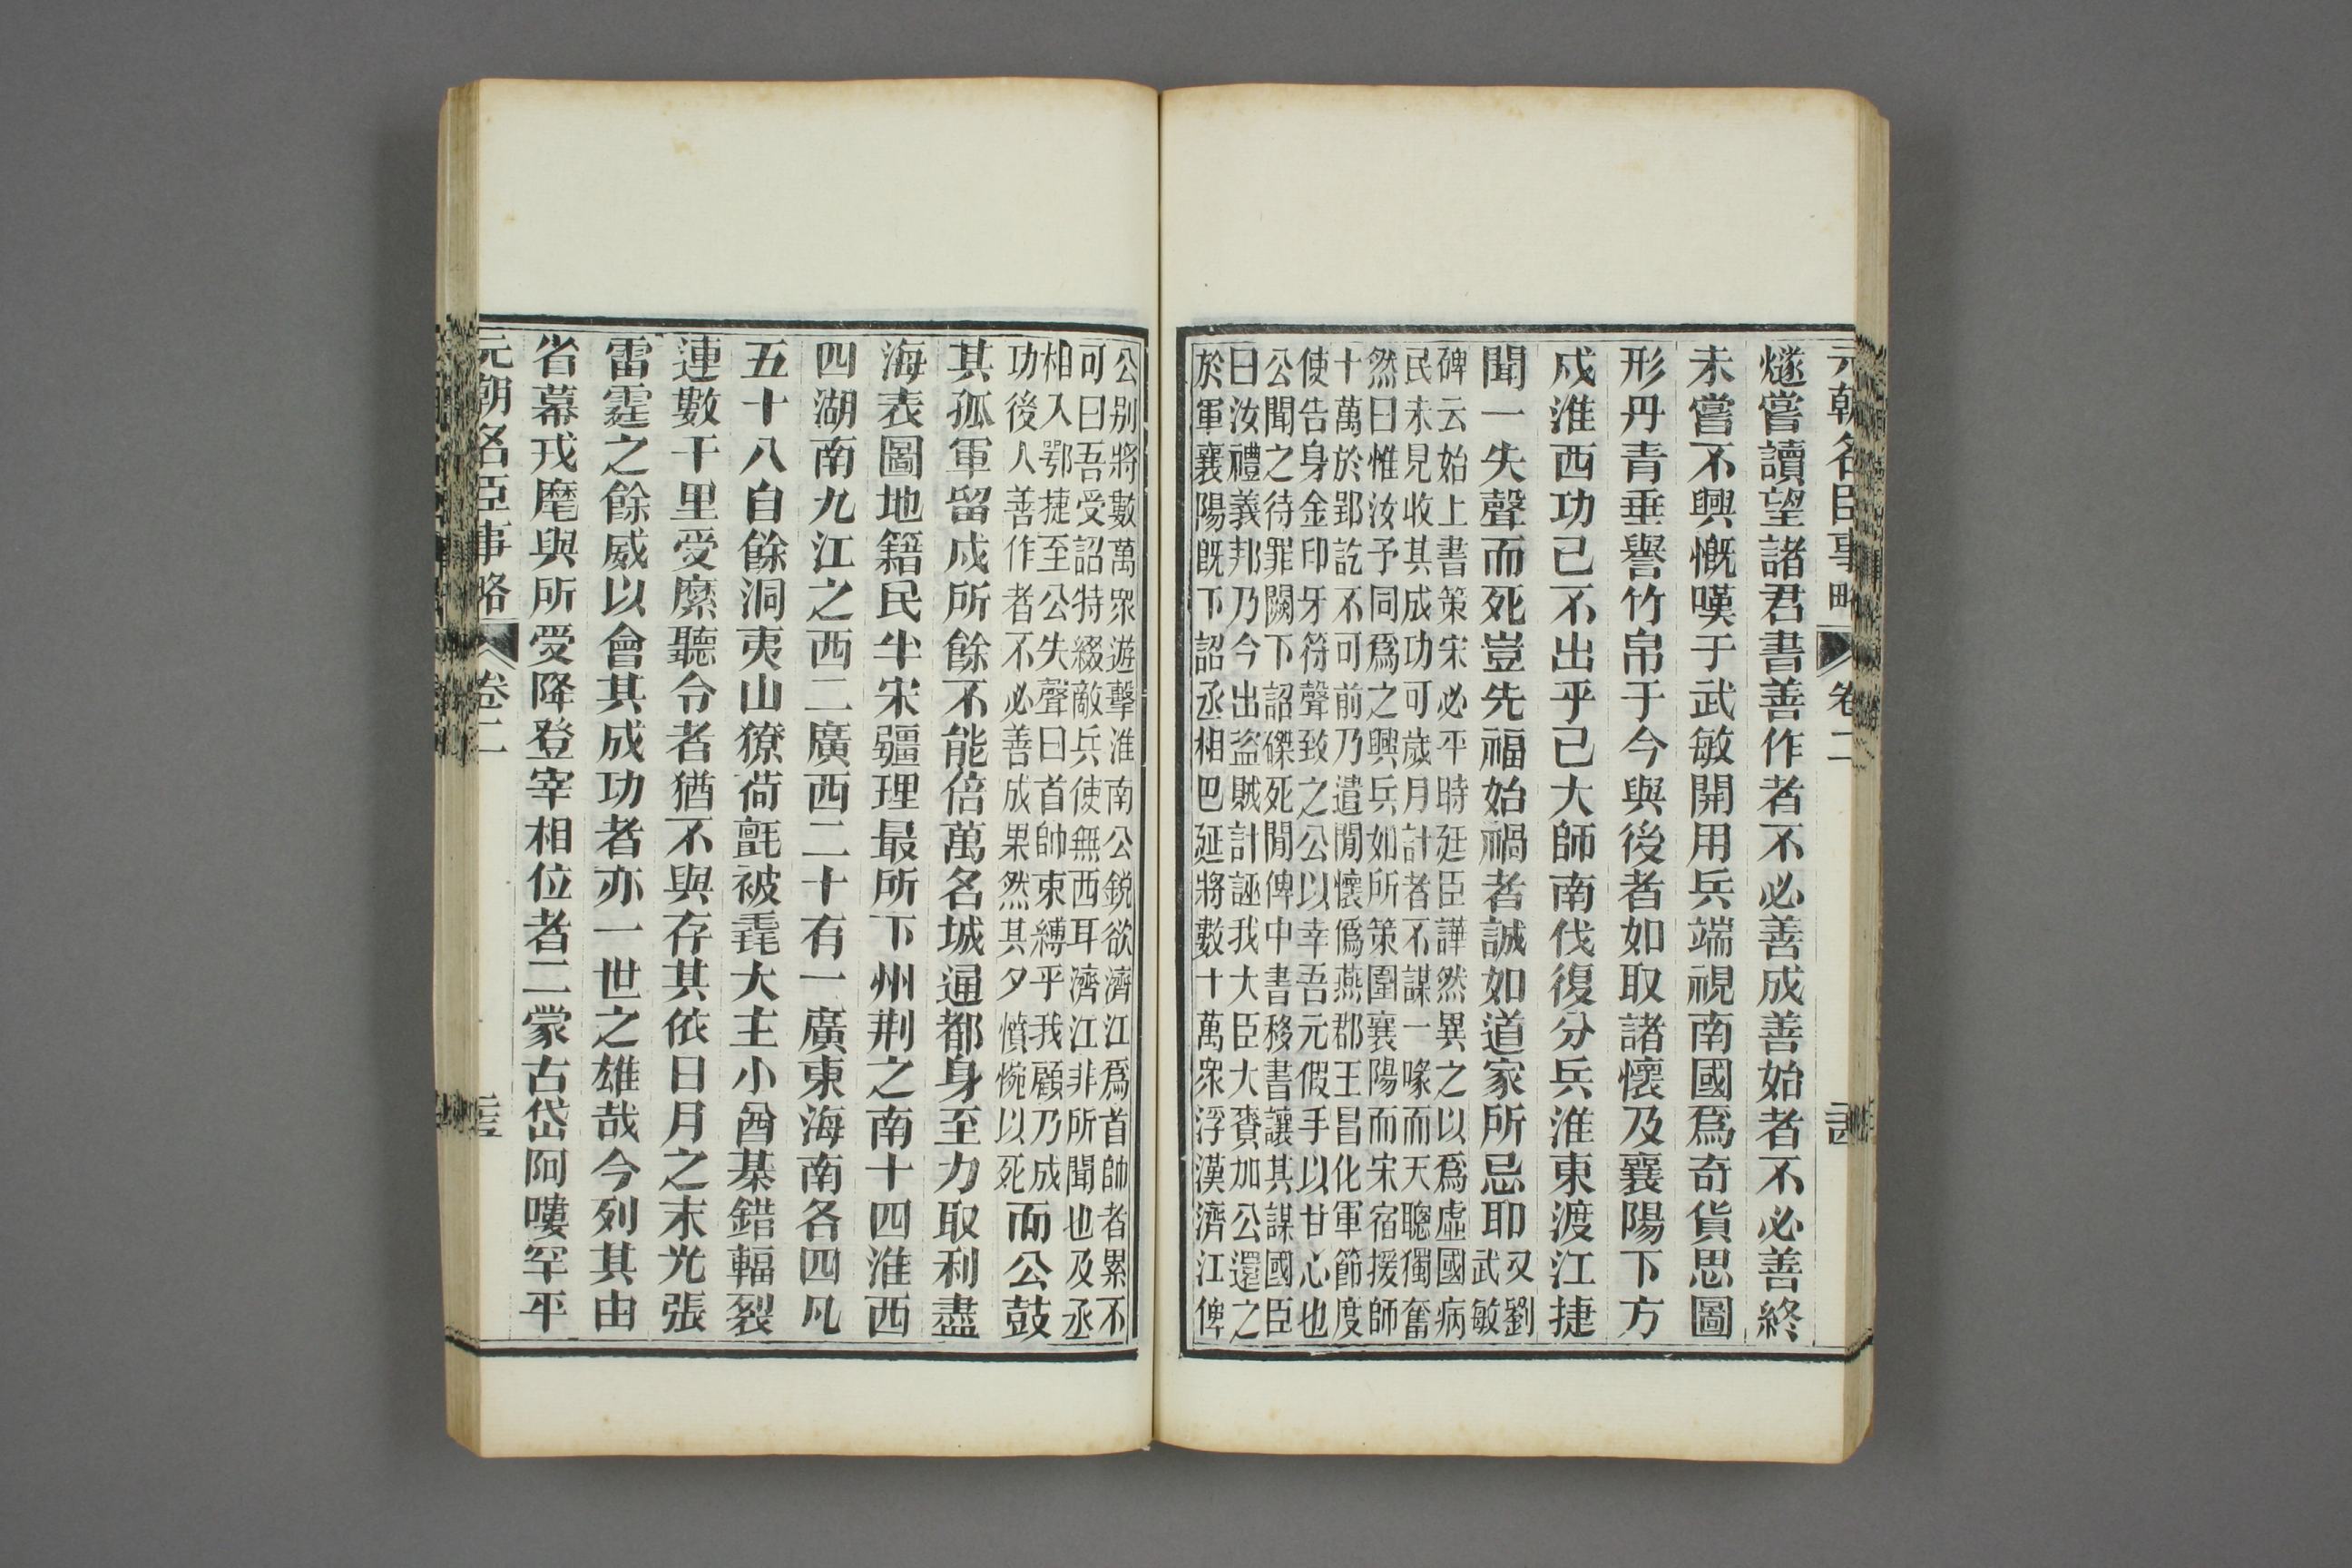 元朝名臣事略 卷二
燧嘗讀望諸君書善作者不必善成善始者不必善終
未嘗不興慨嘆于武敏開用兵端視南國爲奇貨思圖
形丹青垂譽竹帛于今與後者如取諸懷及襄陽下方
戍淮西功已不出乎己大師南伐復分兵淮東渡江捷
聞一失聲而死豈先福始禍者誠如道家所忌耶又劉
武敏
碑云始上書策宋必平時廷臣譁然異之以爲虛國病
民未見收其成功可歲月計者不謀一喙而天聰獨奮
然曰惟汝予同爲之興兵如所策圍襄陽而宋宿援師
十萬於郢訖不可前乃遣閒懷僞燕郡王昌化軍節度
使告身金印牙符聲致之公以幸吾元假手以甘心也
公聞之待罪闕下詔磔死閒俾中書移書讓其謀國臣
曰汝禮義邦乃今出盜賊計誣我大臣大賚加公還之
於軍襄陽旣下詔丞相巴延將數十萬衆浮漢濟江俾
公别將數萬衆遊擊淮南公銳欲濟江爲首帥者累不
可曰吾受詔特綴敵兵使無西耳濟江非所聞也及丞
相入鄂捷至公失聲曰首帥束縛乎我顧乃成
功後人善作者不必善成果然其夕憤惋以死
而公鼓
其孤軍留戍所餘不能倍萬名城通都身至力取利盡
海表圖地籍民半宋疆理最所下州荆之南十四淮西
四湖南九江之西二廣西二十有一廣東海南各四凡
五十八自餘洞夷山獠荷氈被毳大主小酋棊錯輻裂
連數千里受縻聽令者猶不與存其依日月之末光張
雷霆之餘威以會其成功者亦一世之雄哉今列其由
省幕戎麾與所受降登宰相位者二蒙古岱阿嘍罕平
元朝名臣事略 卷二